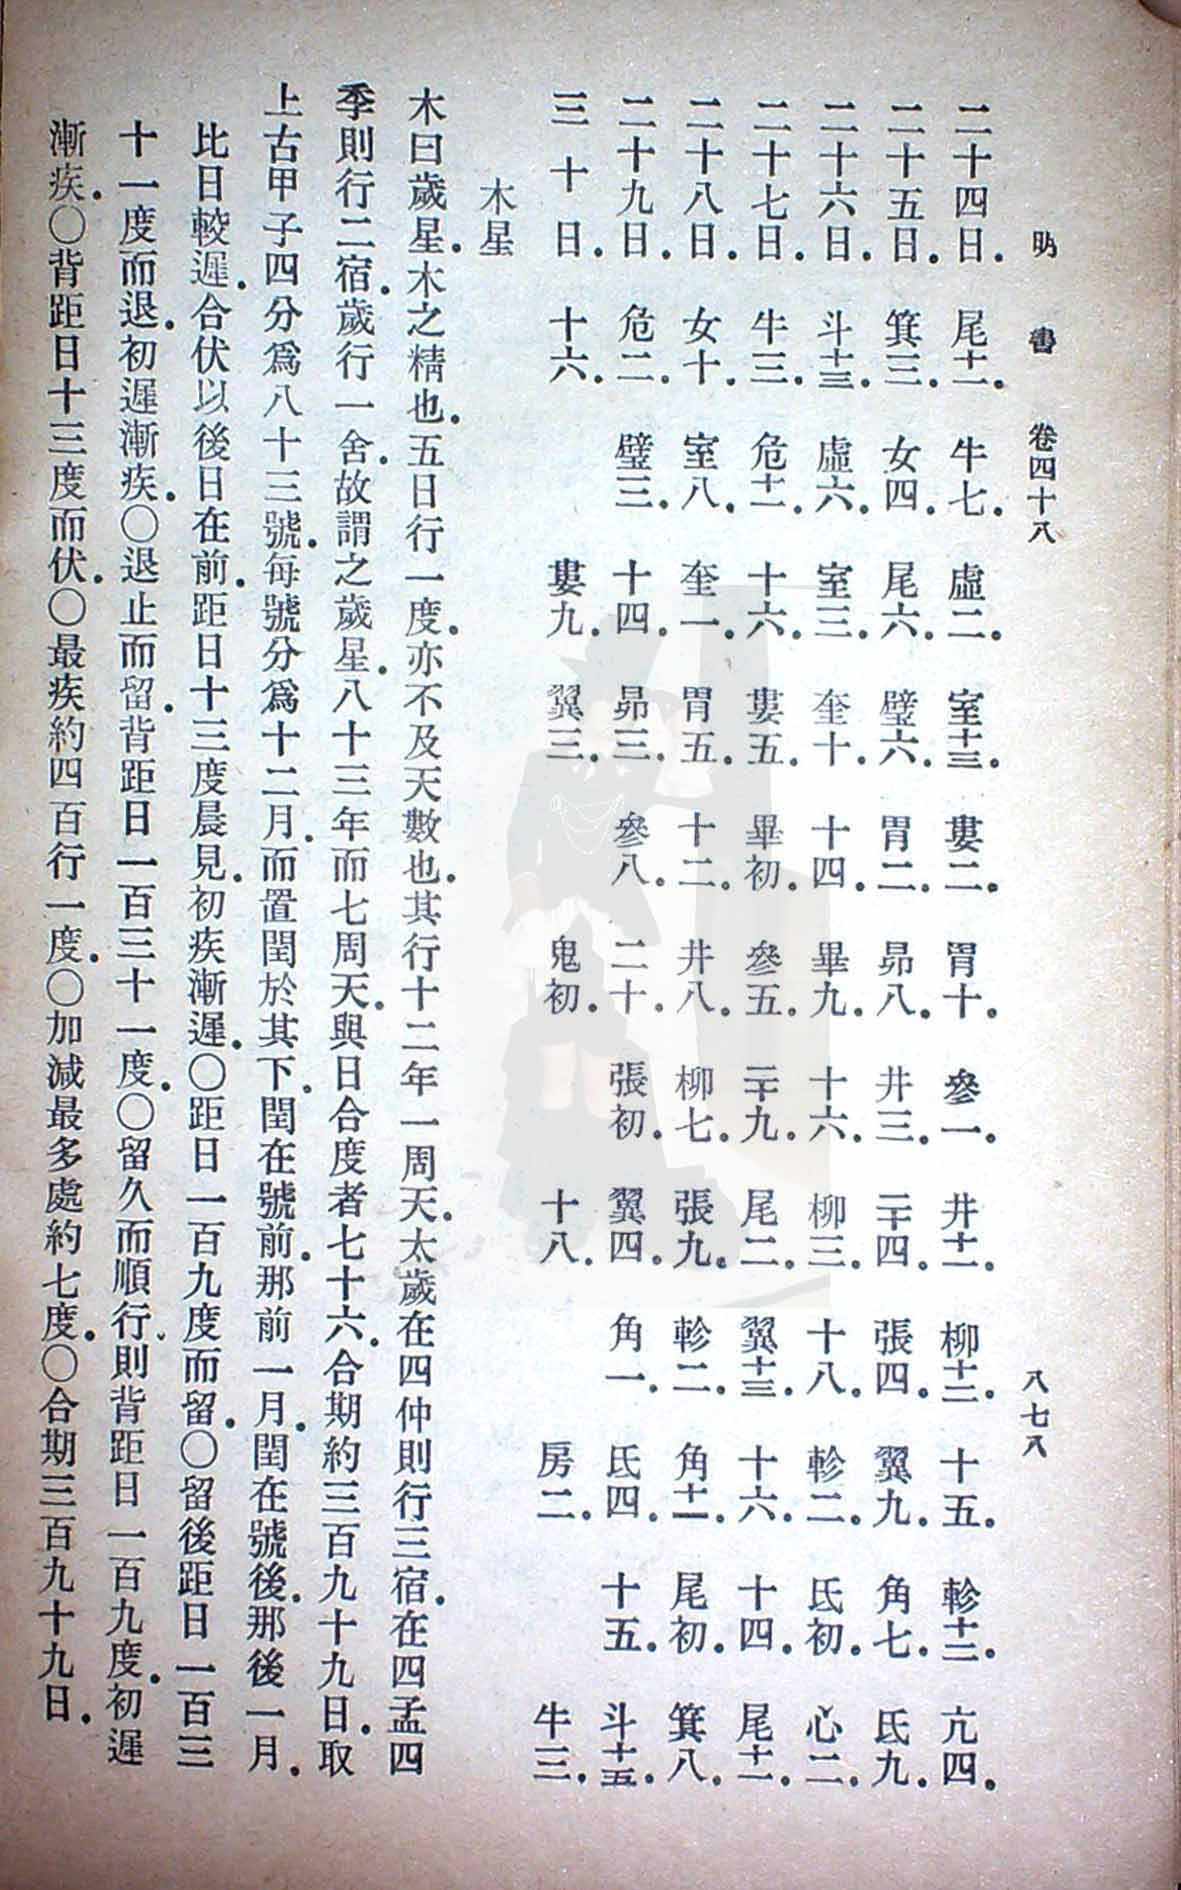 明書 卷四十八 八七八
二十四日。尾十一。牛七。虛二。室十三。婁二。胃十。參一。井十一。柳十二。十五。軫十二。亢四。
二十五日。箕三。女四。尾六。璧六。胃二。昴八。井三。二十四。張四。翼九。角七。氐九。
二十六日。斗十三。虛六。室三。奎十。十四。畢九。十六。柳三。十八。軫二。氐初。心二。
二十七日。牛三。危十一。十六。婁五。畢初。參五。二十九。尾二。翼十三。十六。十四。尾十一。
二十八日。女十。室八。奎一。胃五。十二。井八。柳七。張九。軫二。角十一。尾初。箕八。
二十九日。危二。璧三。十四。昴三。參八。二十。張初。翼四。角一。氐四。十五。斗十五。
三十日。十六。婁九。翼三。鬼初。十八。房二。牛三。
木星
木曰歲星。木之精也。五日行一度。亦不及天數也。其行十二年一周天。太歲在四仲則行三宿。在四孟四
季則行二宿。歲行一舍。故謂之歲星。八十三年而七周天。與日合度者七十六。合期約三百九十九日。取
上古甲子四分爲八十三號。每號分爲十二月。而置閏於其下。閏在號前。那前一月。閏在號後。那後一月。
比日較遲。合伏以後日在前。距日十三度晨見。初疾漸遲。〇距日一百九度而留。〇留後距日一百三
十一度而退。初遲漸疾。〇退止而留。背距日一百三十一度。〇留久而順行。則背距日一百九度。初遲
漸疾。〇背距日十三度而伏。〇最疾約四百行一度。〇加減最多處約七度。〇合期三百九十九日。